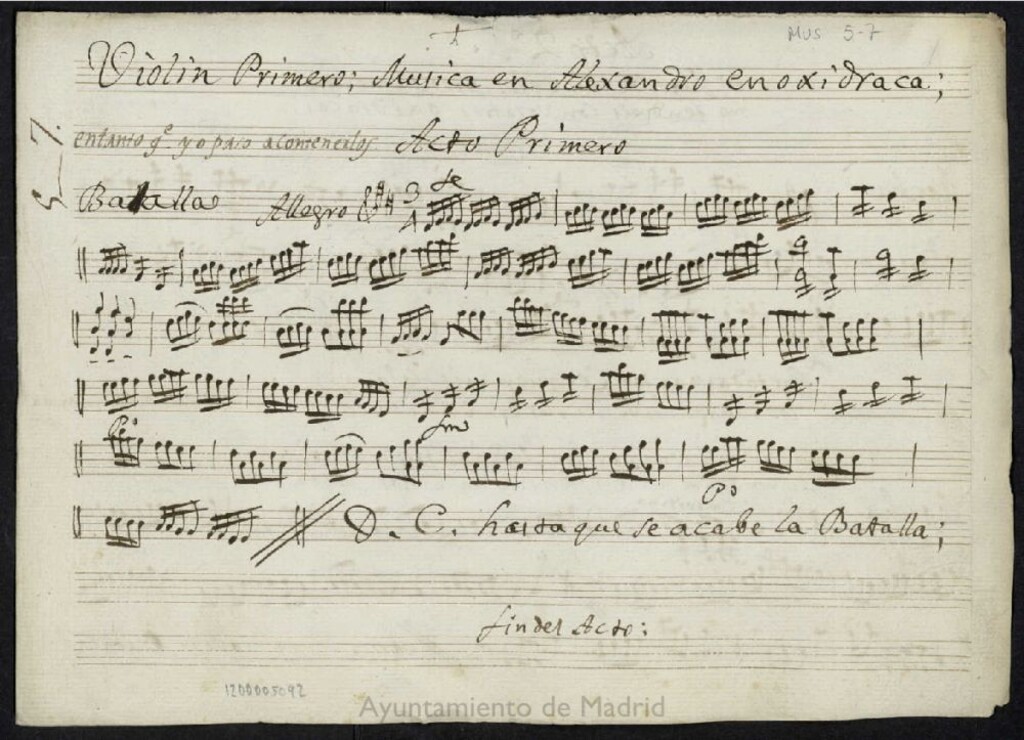 MUS 5-7
Violin Primero; Musica en Alexandro en oxidraca;
5_7.
entanto q.e yo paso acomencerlos Acto Primero
Batalla Allegro 3 4 fe
Po fmo
Po
D. C. hasta que se acabe la Batalla;
fin del Acto:
1200005092
Ayuntamiento de Madrid